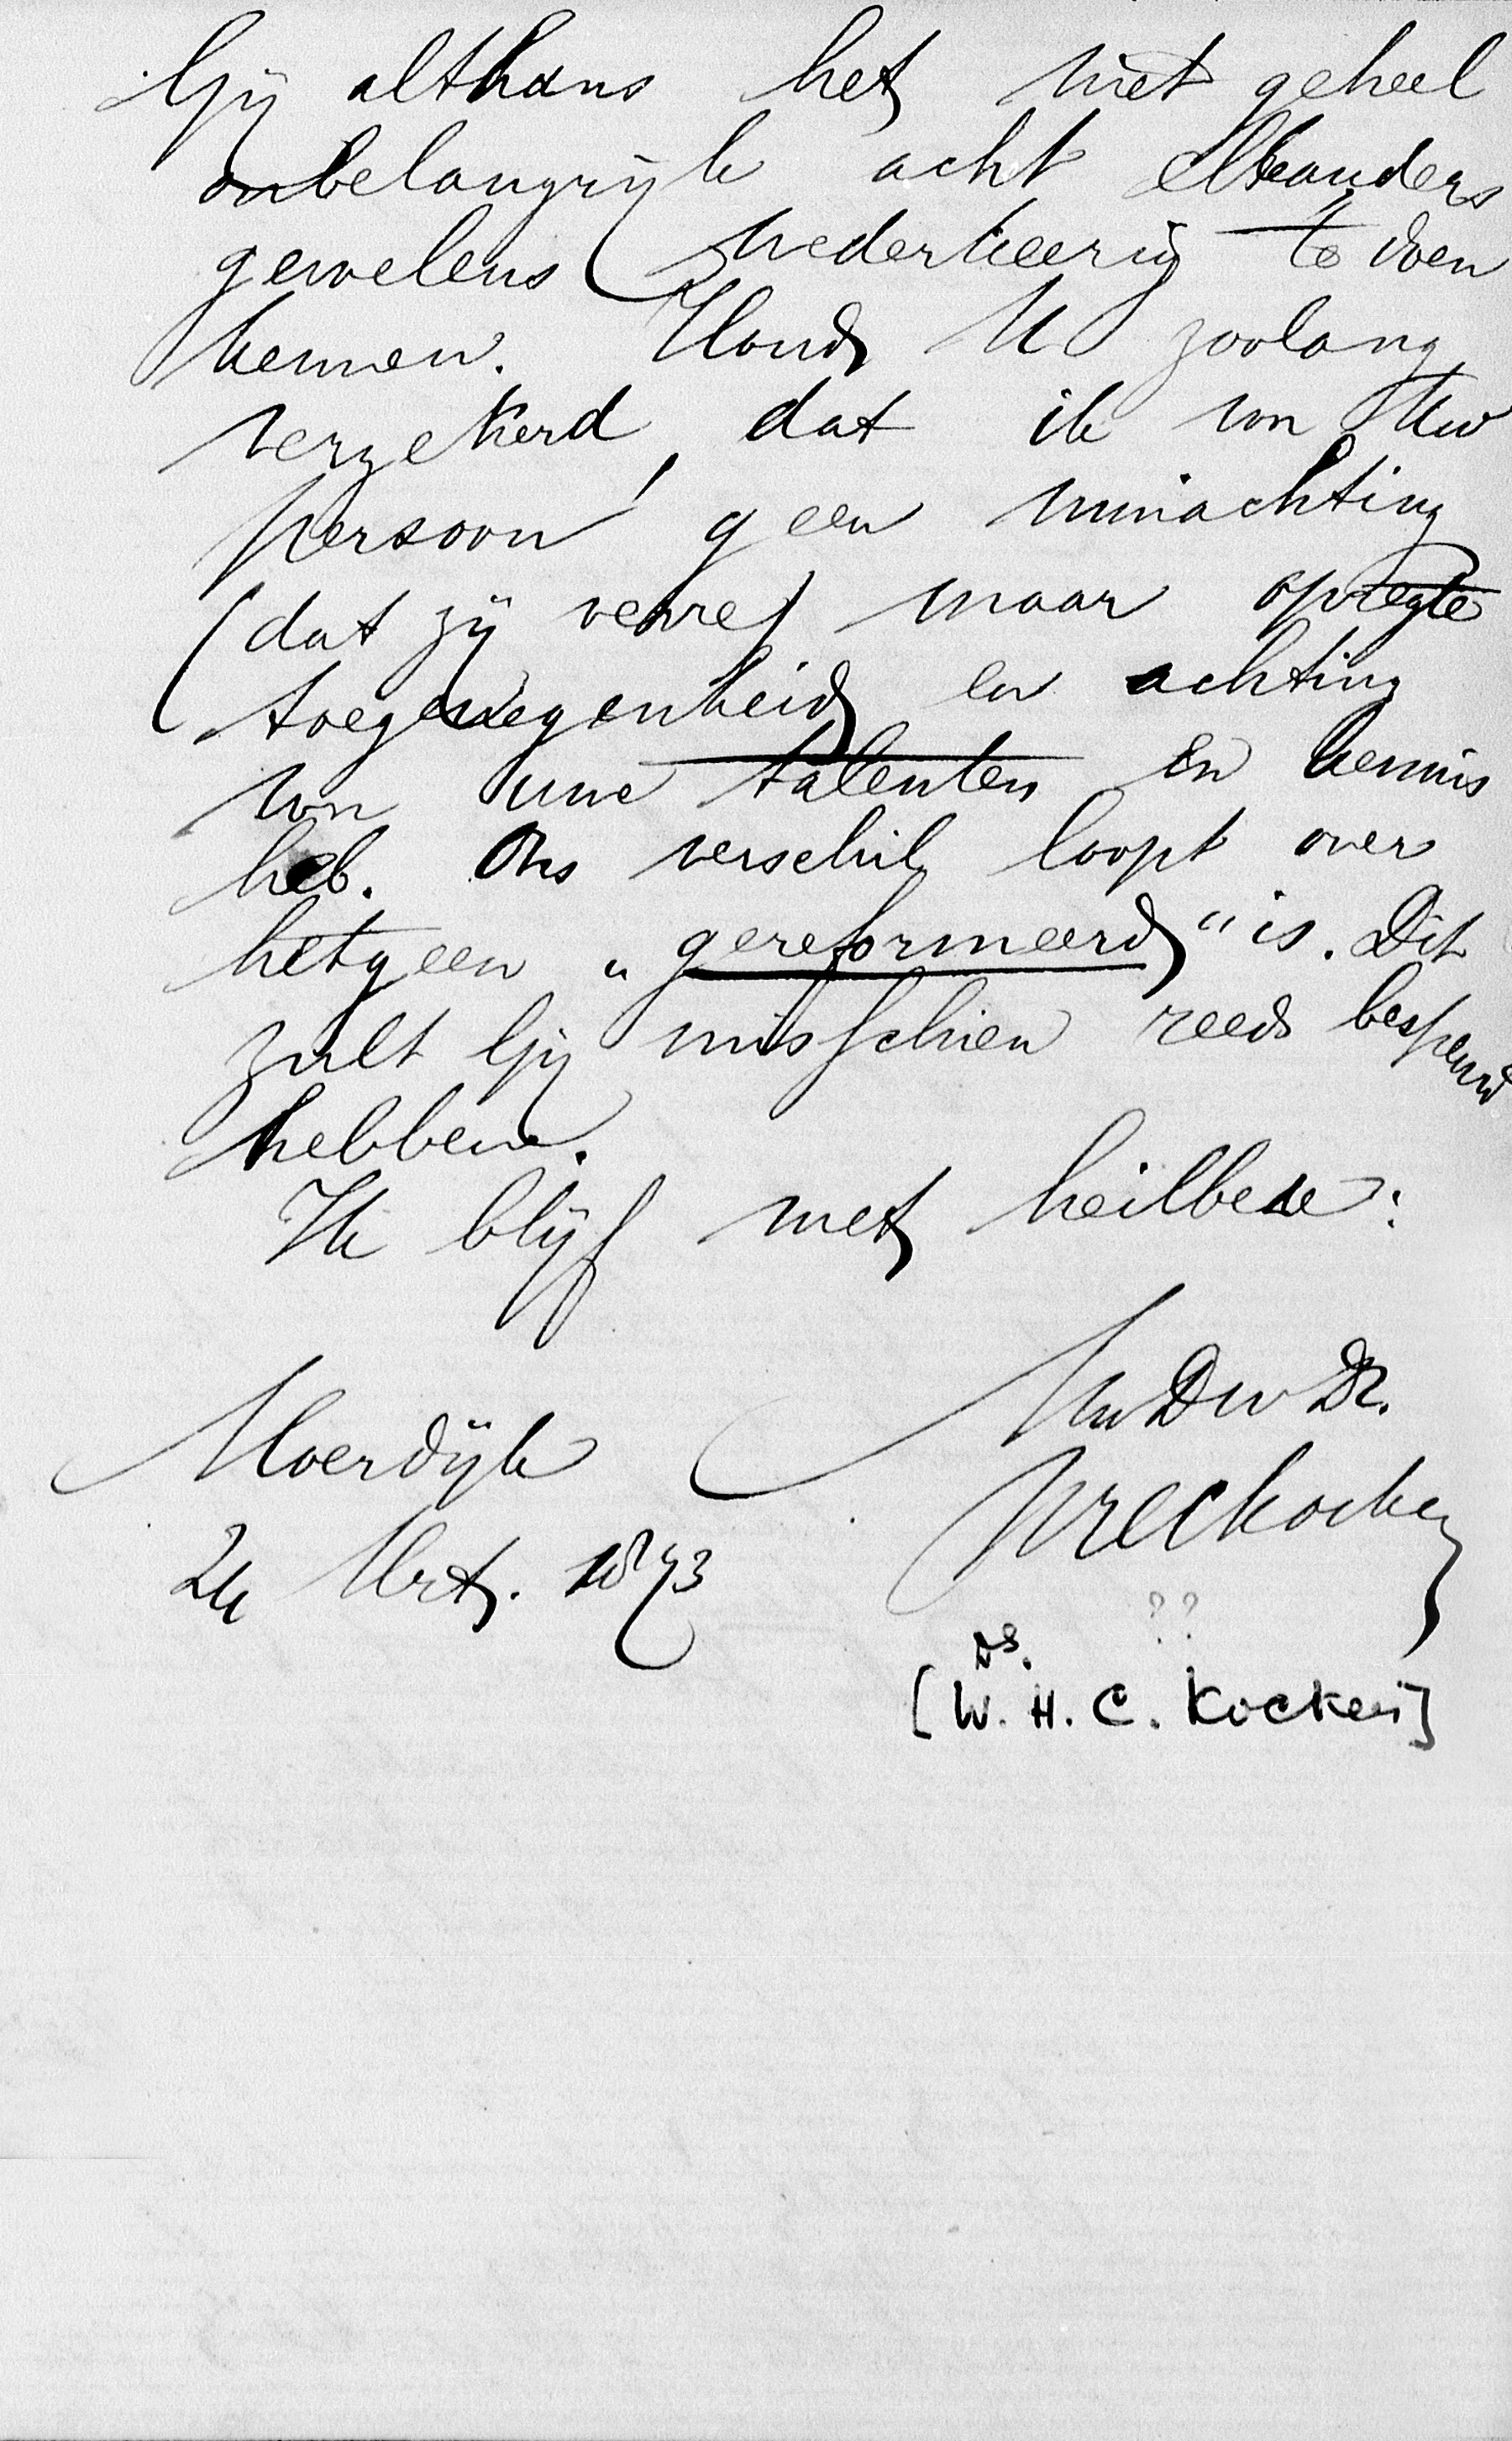 Gij althans het niet geheel
onbelangrijk acht elkanders
gevoelens wederkeerig te doen
kennen. Houd U zoolang
verzekerd dat ik van Uw
persoon geen minachting
(dat zij verre) maar opregte
toegenegenheid en achting
van uwe talenten en kennis
heb. Ons verschil loopt over
hetgeen „gereformeerd" is. Dit
zult Gij misschien reeds bespeurd
hebben.
Ik blijf met heilbede:
Uw Dw Dr.
Moerdijk
WHCKocken
24 Mrt. 1873
??
Ds.
[W. H. C. Kocken]